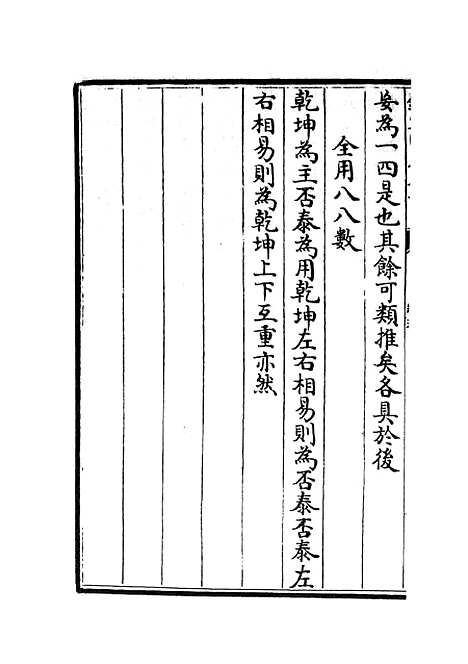 妄為一四是也其餘可類推矣各具於後
全用八八數
乾坤為主否泰為用乾坤左右相易則為否泰否泰左
右相易則為乾坤上下互重亦然